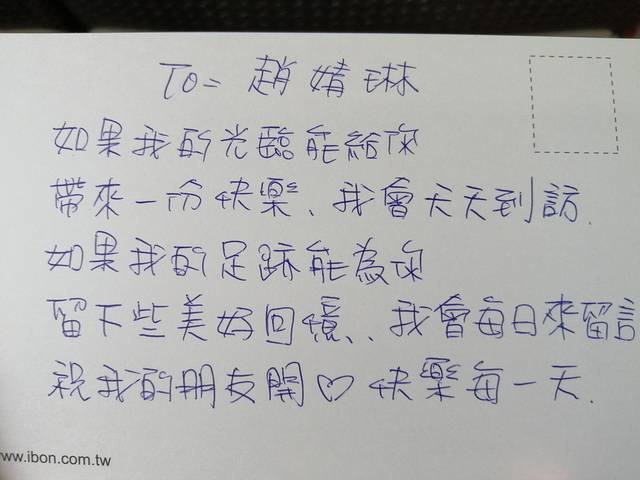 To= 趙婧琳
如果我的光臨能給你
帶來一份快樂、我會天天到訪.
如果我的足跡能為你
留下些美好回憶、、我會每日來留言
祝我的朋友開♡快樂每一天.
www.ibon.com.tw